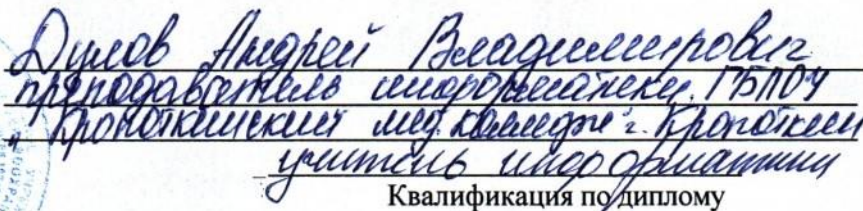 Дулов Андрей Владимирович
преподаватель информатики ГБПОУ
"Кропоткинский мед. колледж" г. Кропоткин
учитель информатики
Квалификация по диплому